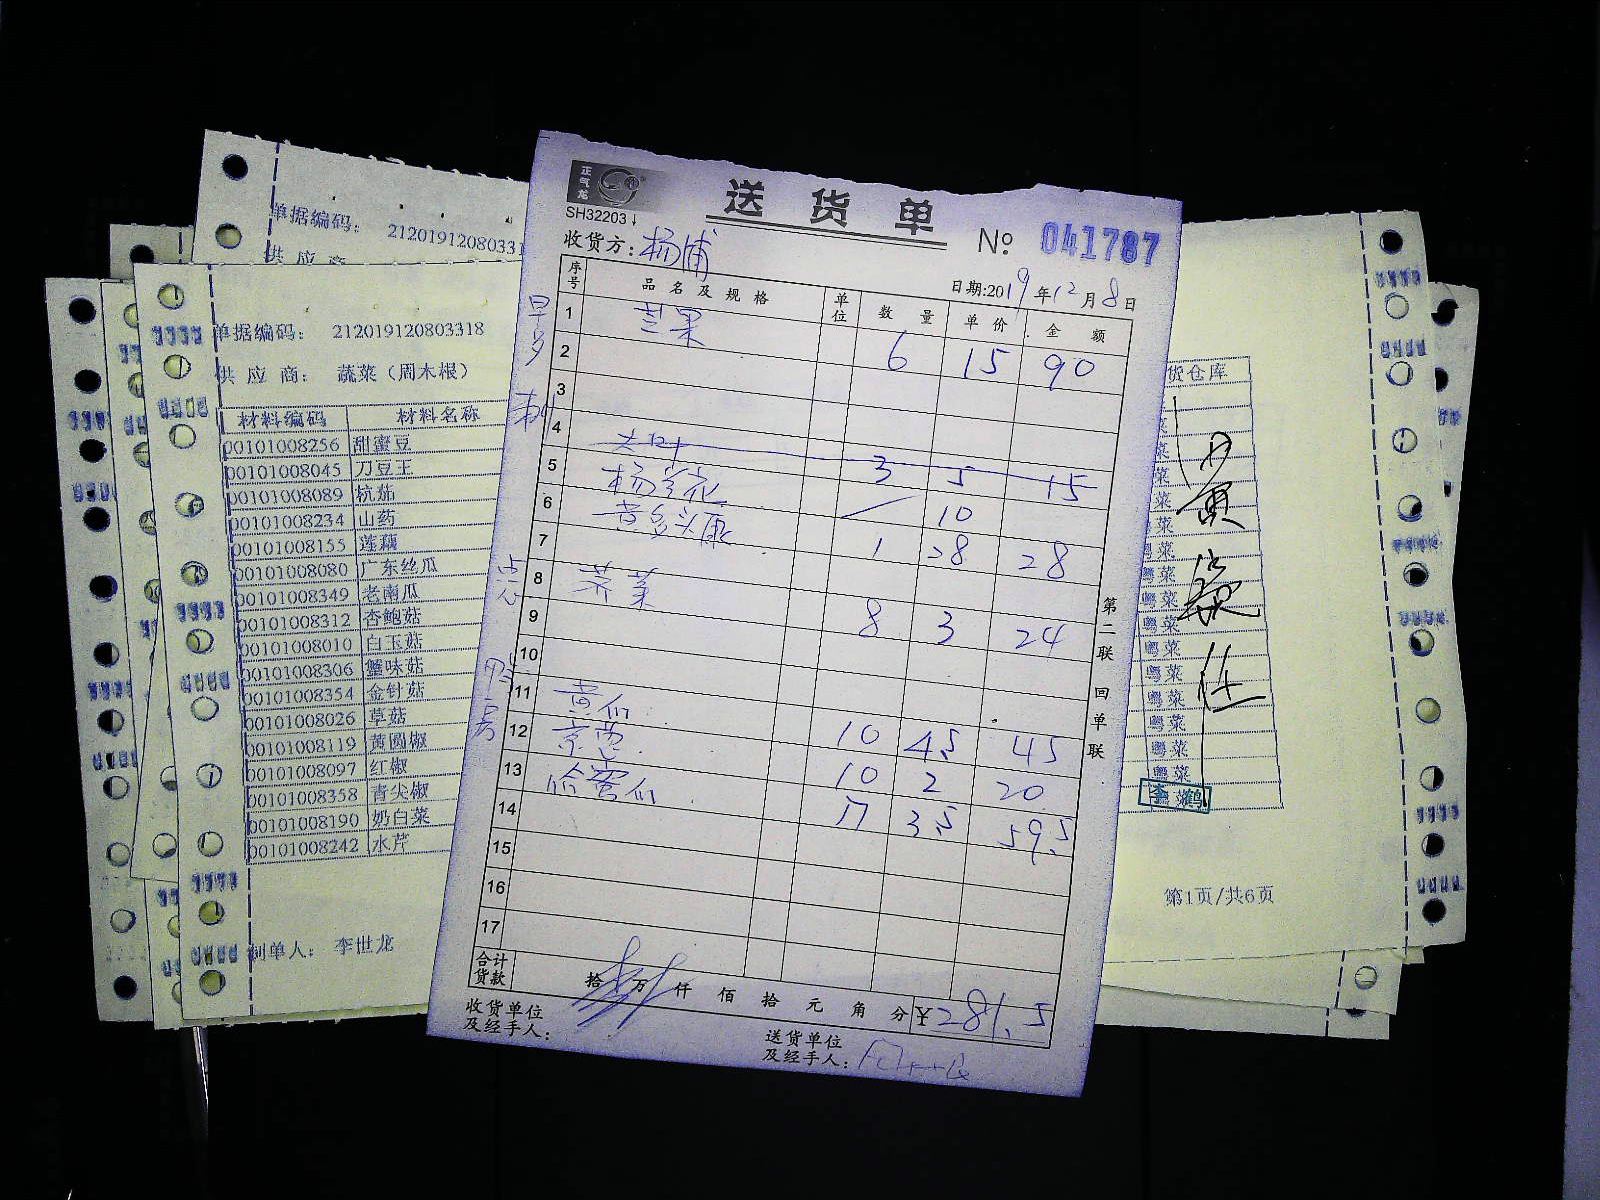 正气龙
SH32203
送货单
№ 041787
收货方：杨浦
日期:2019年12月8日
序号 品名及规格 单位 数量 单价 金额
1 芒果 6 15 90
2
3
4 大叶 3 5 15
5 10
6 1 28 28
7
8 荠菜 8 3 24
9
10
11 黄瓜 10 4.5 45
12 京葱 10 2 20
13 17 3.5 59.5
14
15
16
17
合计货款 拾万仟佰拾元角分 ¥281.5
收货单位及经手人：
送货单位及经手人：
第二联 回单联
点心
单据编码： 21201912080331
供应商
单据编码： 212019120803318
供应商： 蔬菜（周木根）
材料编码 材料名称
00101008256 甜蜜豆
00101008045 刀豆王
00101008089 杭茄
00101008234 山药
00101008155 莲藕
00101008080 广东丝瓜
00101008349 老南瓜
00101008312 杏鲍菇
00101008010 白玉菇
00101008306 蟹味菇
00101008354 金针菇
00101008026 草菇
00101008119 黄圆椒
00101008097 红椒
00101008358 青尖椒
00101008190 奶白菜
00101008242 水芹
制单人： 李世龙
货仓库
菜
菜
菜
菜
菜
粤菜
粤菜
粤菜
粤菜
粤菜
粤菜
粤菜
粤菜
粤菜
粤菜
第1页/共6页